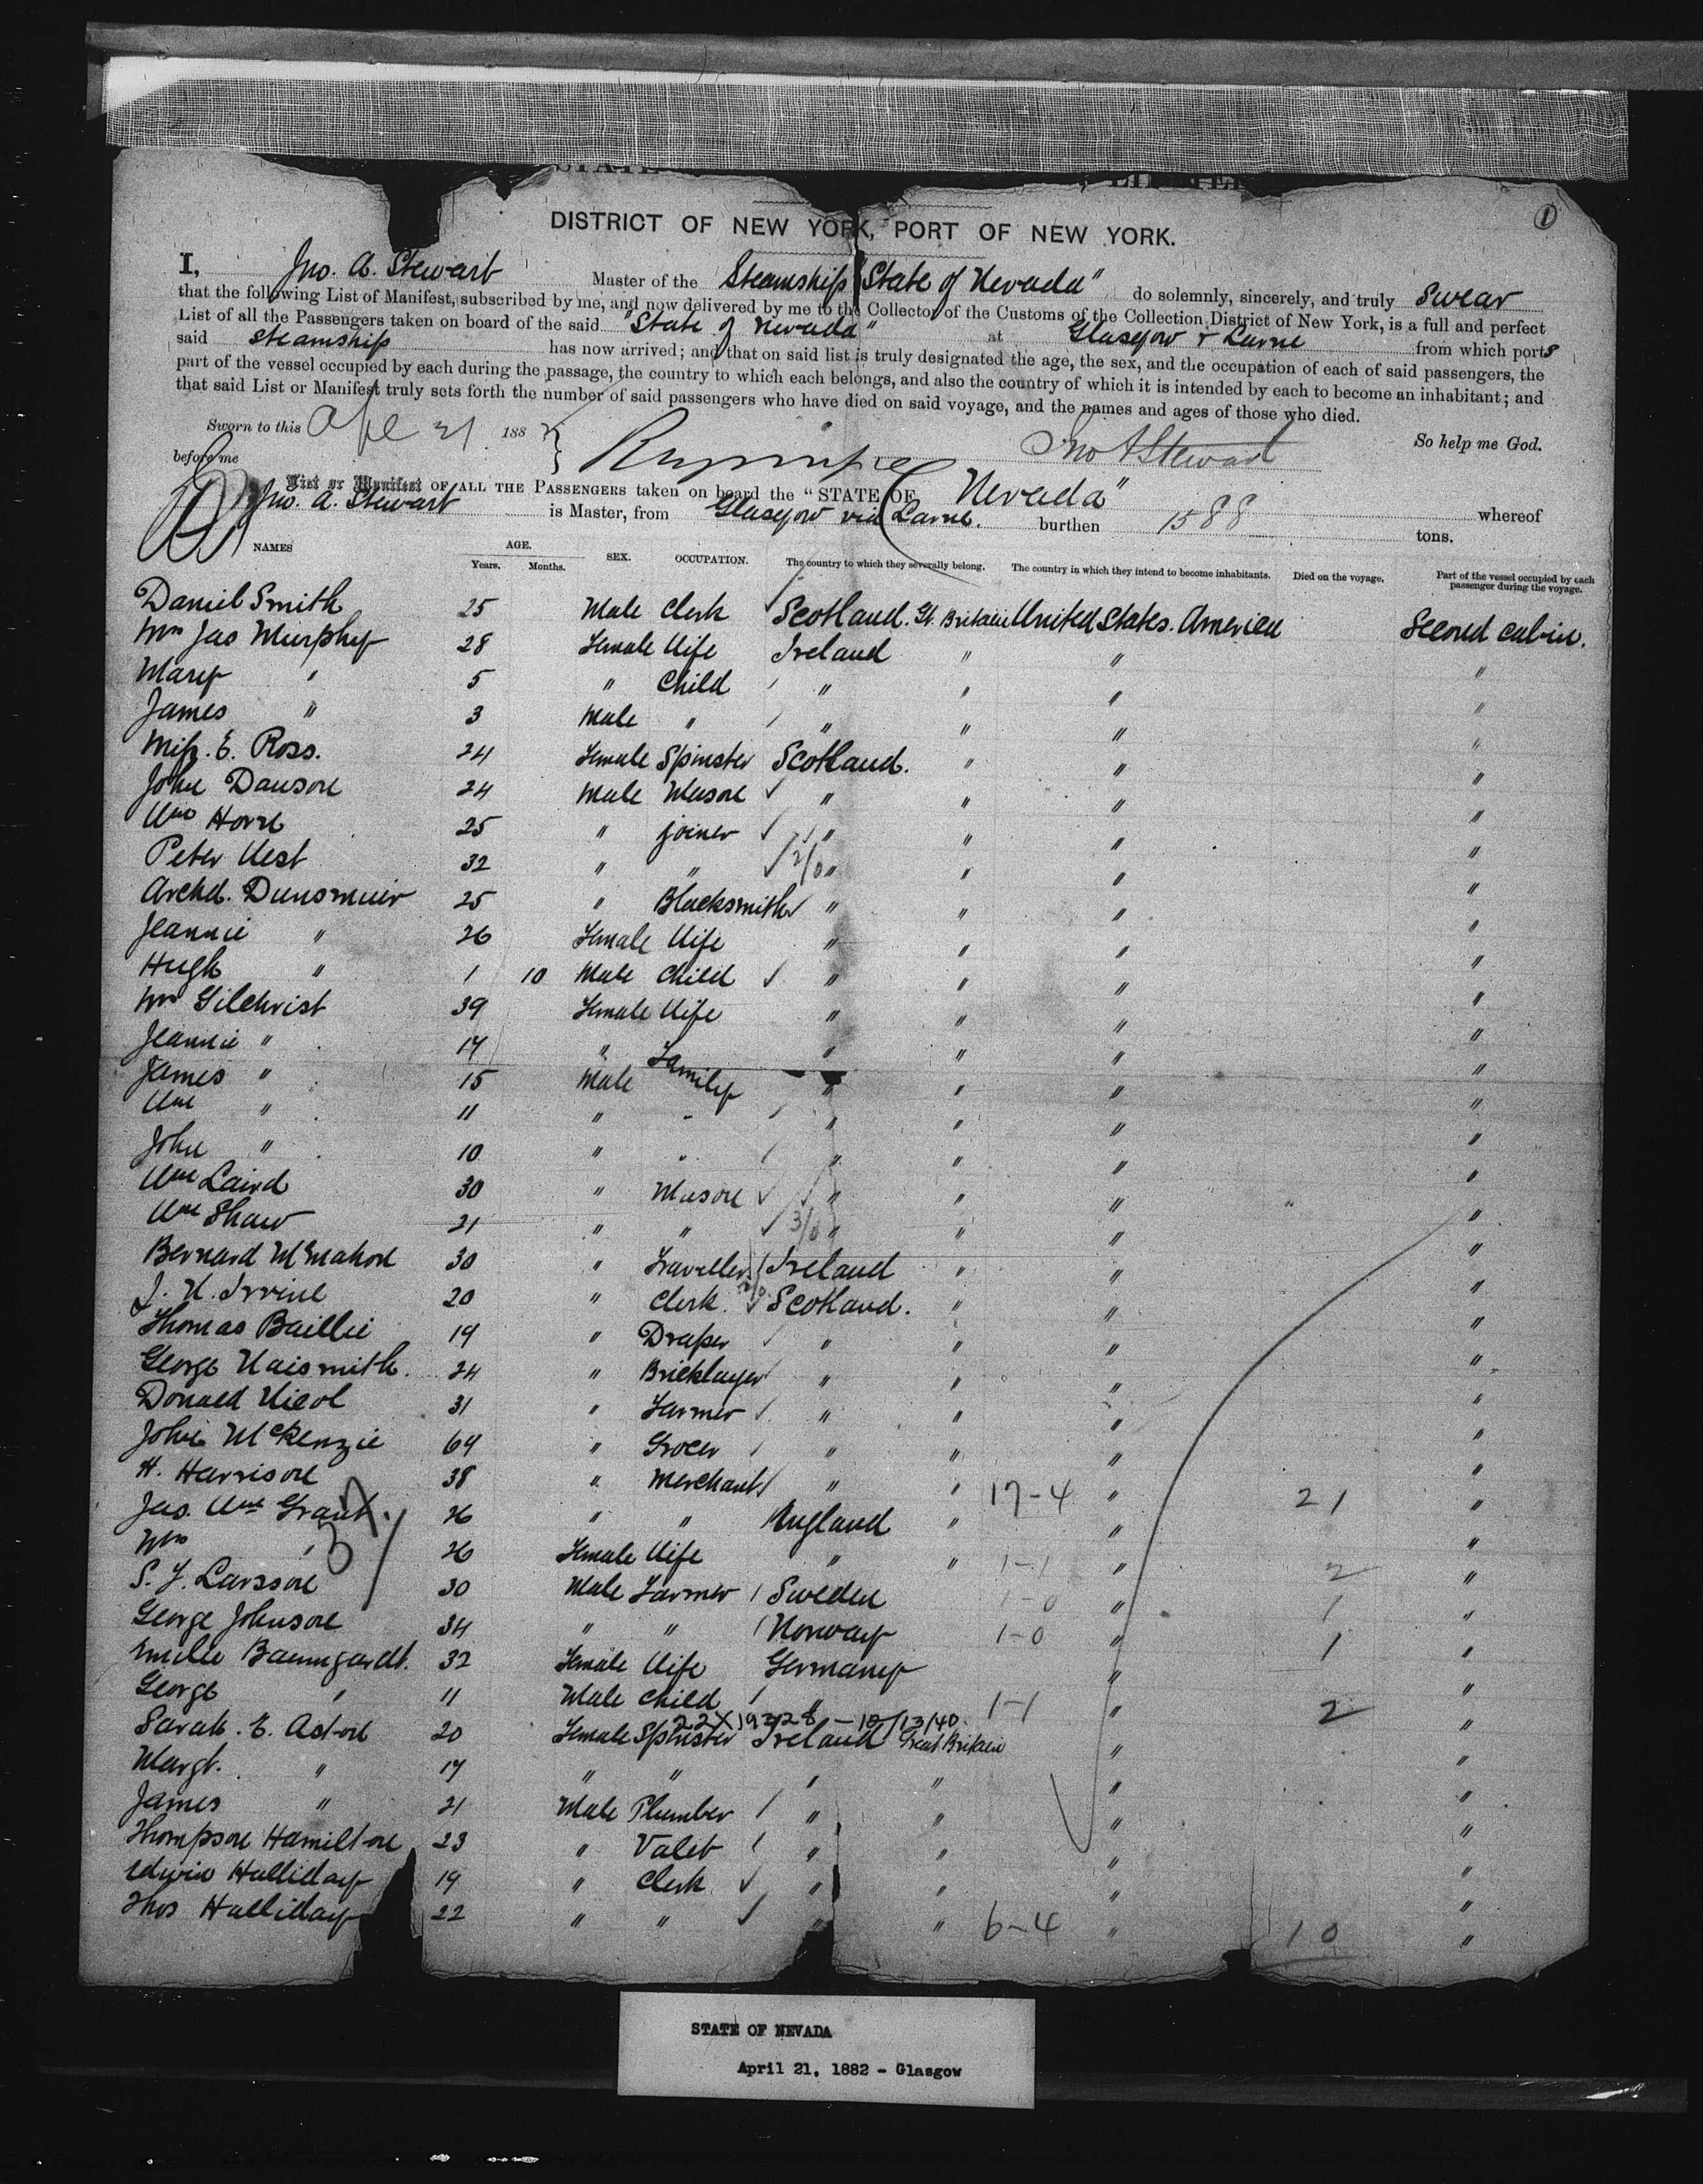 DISTRICT OF NEW YORK, PORT OF NEW YORK.
1
I, Jno. A. Stewart Master of the Steamship "State of Nevada" do solemnly, sincerely, and truly swear
that the following List of Manifest, subscribed by me, and now delivered by me to the Collector of the Customs of the Collection District of New York, is a full and perfect
List of all the Passengers taken on board of the said "State of Nevada" at Glasgow & Larne from which ports
said steamship has now arrived; and that on said list is truly designated the age, the sex, and the occupation of each of said passengers, the
part of the vessel occupied by each during the passage, the country to which each belongs, and also the country of which it is intended by each to become an inhabitant; and
that said List or Manifest truly sets forth the number of said passengers who have died on said voyage, and the names and ages of those who died.
Sworn to this Apl 21 1882 Jno A Stewart So help me God.
before me
List or Manifest OF ALL THE PASSENGERS taken on board the "STATE OF Nevada" whereof
Jno. A. Stewart is Master, from Glasgow via Larne. burthen 1588 tons.
NAMES AGE. Years. Months. SEX. OCCUPATION. The country to which they severally belong. The country in which they intend to become inhabitants. Died on the voyage. Part of the vessel occupied by each passenger during the voyage.
Daniel Smith 25 Male Clerk Scotland. Gt. Britain United States. America Second cabin.
Mrs Jas Murphy 28 Female Wife Ireland " " "
Mary " 5 " Child " " " "
James " 3 Male " " " " "
Miss. E. Ross. 24 Female Spinster Scotland. " " "
John Dawson 24 Male Mason " " " "
Wm Horn 25 " joiner " " " "
Peter West 32 " " 2/0 " " " "
Archd. Dunsmuir 25 " Blacksmith " " " "
Jeannie " 26 Female Wife " " " "
Hugh " 1 10 Male Child " " " "
Mrs Gilchrist 39 Female Wife " " " "
Jeannie " 17 " Family " " " "
James " 15 Male " " " "
Wm " 11 " " " " " "
John " 10 " " " " " "
Wm Laird 30 " Mason " " " "
Wm Shaw 21 " " 3/0 " " " "
Bernard McMahon 30 " Traveller Ireland " " "
J. W. Irvine 20 " Clerk. Scotland. " " "
Thomas Baillie 19 " Draper " " " "
George Naismith. 24 " Bricklayer " " " "
Donald Nicol 31 " Farmer " " " "
John McKenzie 64 " Grocer " " " "
H. Harrison 38 " Merchant " " 17-4 " 21 "
Jas. Wm Grant. 26 " " England " " "
Mrs " 26 Female Wife " " 1-1 " 2 "
S. J. Larsson 30 Male Farmer Sweden 1-0 " 1 "
George Johnson 34 " " Norway 1-0 " 1 "
Emilie Baumgardt. 32 Female Wife Germany " "
George " 11 Male Child " 1-1 " 2 "
Sarah. E. Aston 20 Female Spinster Ireland Great Britain " "
Margt. " 17 " " " " " "
James " 21 Male Plumber " " " "
Thompson Hamilton 23 " Valet " " " "
Edwin Halliday 19 " Clerk " " " "
Thos Halliday 22 " " " " 6-4 " 10 "
STATE OF NEVADA
April 21, 1882 - Glasgow